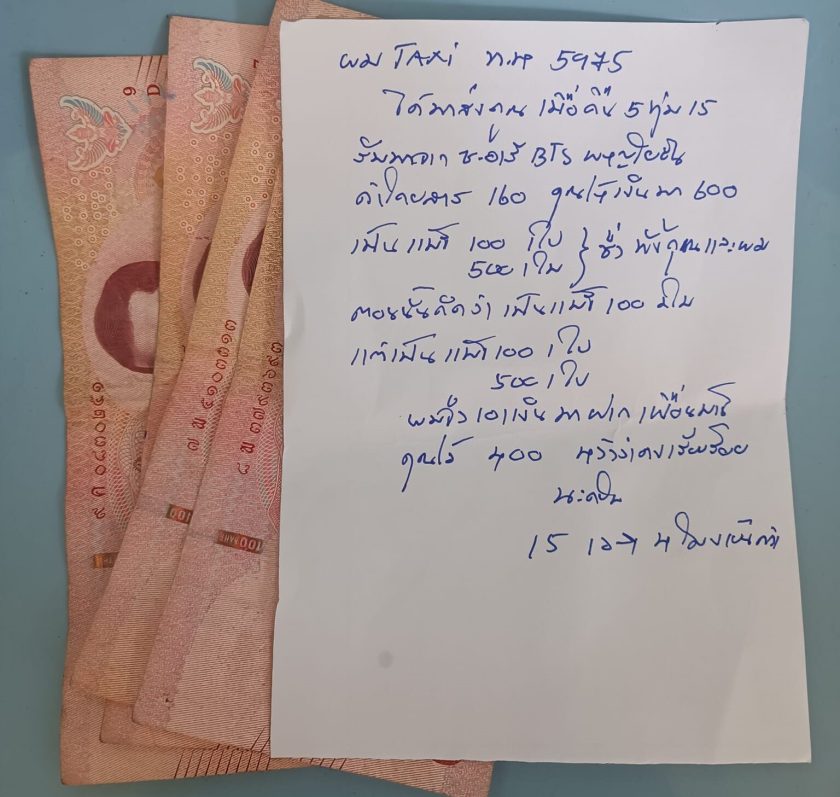 9
D
๙ ค ๐๘๓๐๒๕๑
๗ พ ๕๑๐๓๗๑๓
๘ พ ๓๗๕๓๖๙๓
100
100 BAHT
ผม TAXi ท.ห 5975
ได้มาส่งคุณ เมื่อคืน 5 ทุ่ม 15
รับมาจาก ซ.อารี BTS พหลโยธิน
ค่าโดยสาร 160 คุณให้เงินมา 600
เป็นแบ๊งค์ 100 1 ใบ
500 1 ใบ } ซึ่ง ทั้งคุณและผม
ตอนนั้นคิดว่า เป็นแบ๊งค์ 100 2 ใบ
แต่เป็นแบ๊งค์ 100 1 ใบ
500 1 ใบ
ผมจึงเอาเงินมาฝากเพื่อน
คุณไว้ 400 หวังว่าคงเรียบร้อย
นะครับ
15 4 โมง